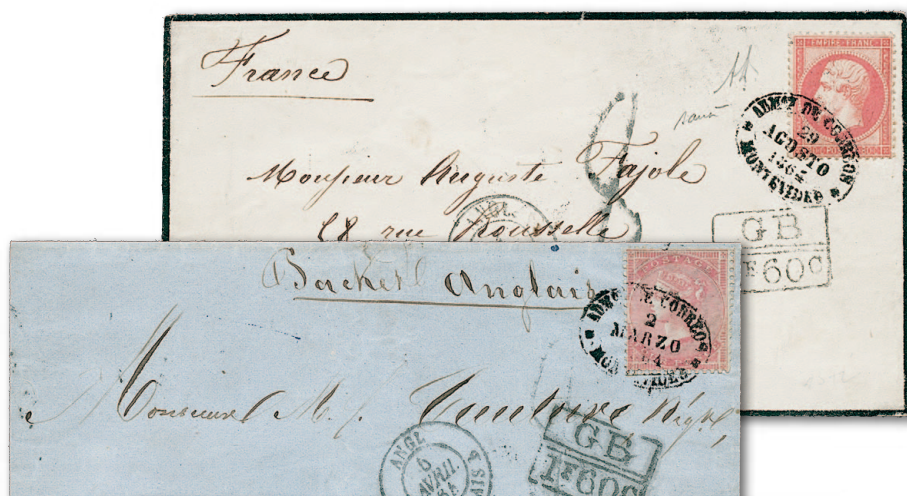 France
EMPIRE FRANC
ADMON DE CORREOS
29
AGOSTO
1864
MONTEVIDEO
8
Monsieur Auguste Fajole
28 rue Rousselle
ANGL.
GB
1F60c
Packet Anglais
POSTAGE
DE CORREOS
2
MARZO
64
MONTEVIDEO
Monsieur M. J.
Négt,
ANGL
6
AVRIL
64
GB
1F60c